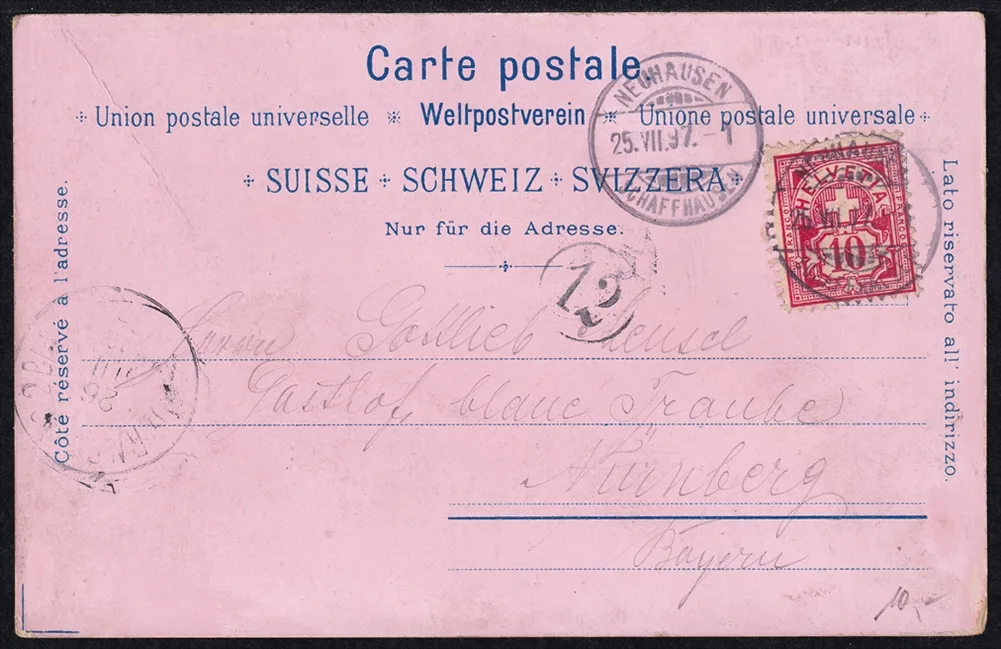 Carte postale.
Union postale universelle Weltpostverein Unione postale universale
SUISSE SCHWEIZ SVIZZERA
Nur für die Adresse.
NEUHAUSEN
25.VII.97.-1
SCHAFFHAUSEN
HELVETIA
FRANCO FRANCO
10
12
Côté réservé à l'adresse.
Lato riservato all' indirizzo.
Herrn Gottlieb Hensel
Gasthof blaue Traube
Nürnberg
Bayern
10,-